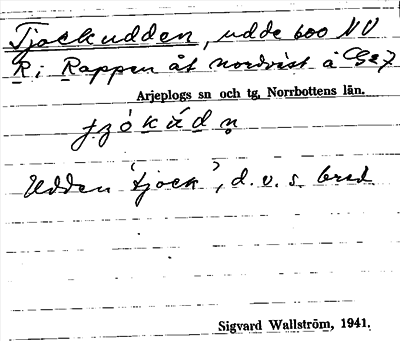 Tjockudden, udde 600 NV
R i Rappen åt nordväst å Gs 7
Arjeplogs sn och tg, Norrbottens län.
Udden 'tjock', d. v. s. bred
Sigvard Wallström, 1941.